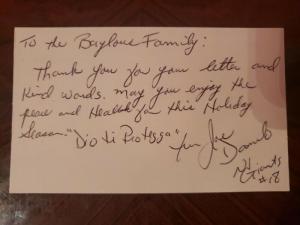 To the Baylous Family:
Thank you for your letter and
kind words. May you enjoy the
peace and Health for this Holiday
Season. "Dio ti Protegga"
Joe
NY Giants
#18